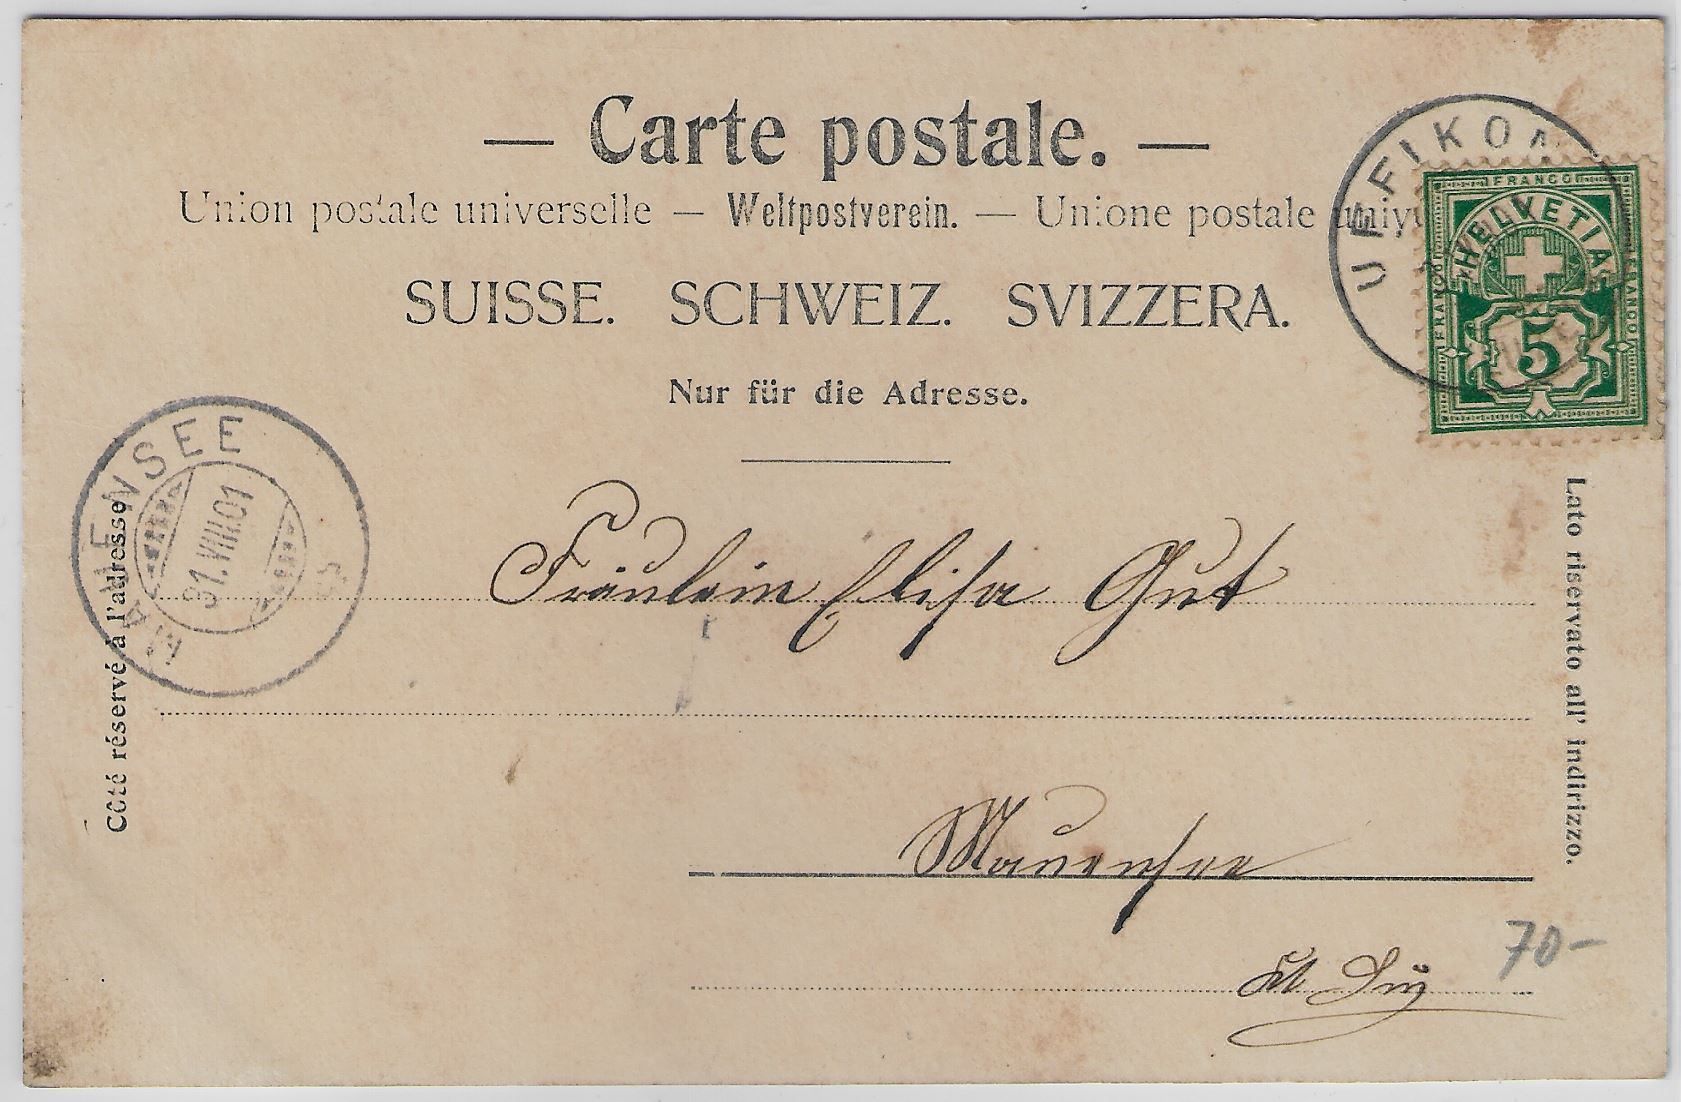 — Carte postale. —
Union postale universelle — Weltpostverein. — Unione postale
SUISSE. SCHWEIZ. SVIZZERA.
Nur für die Adresse.
UFFIKON
FRANCO
FRANCO
FRANCO
HELVETIA
5
MAUENSEE
31.VIII.01
Côté réservé à l'adresse
Lato riservato all' indirizzo.
Fräulein Elisa Gut
Mauensee
Kt.
70-